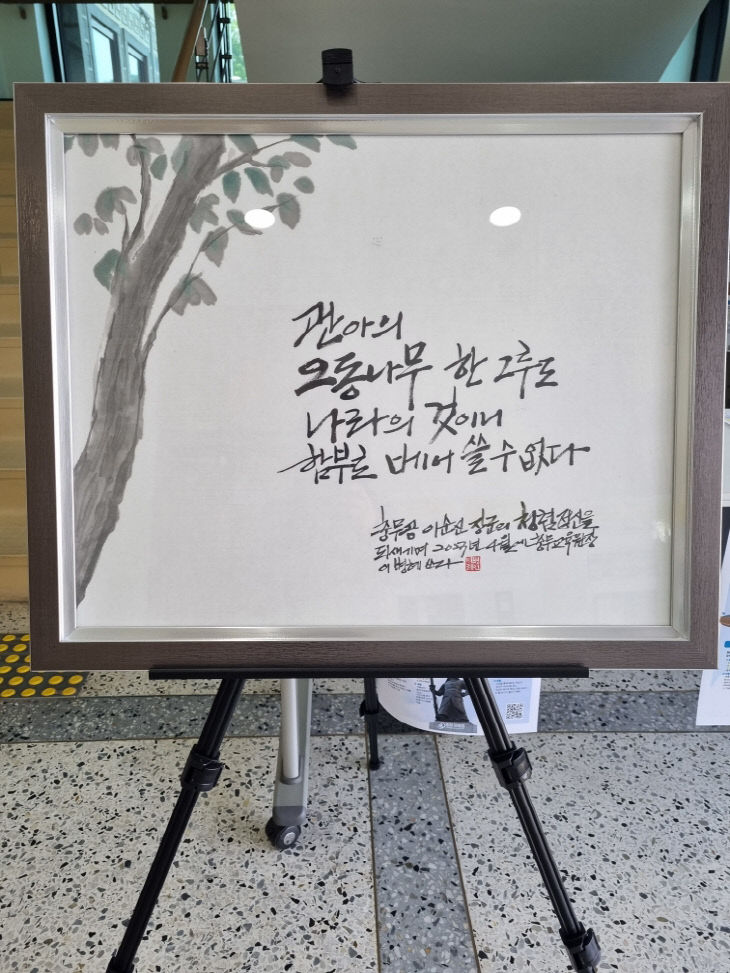 관아의
오동나무 한 그루도
나라의 것이니
함부로 베어 쓸 수 없다
충무공 이순신 장군의 청렴정신을
되새기며 2023년 4월에
쓰다